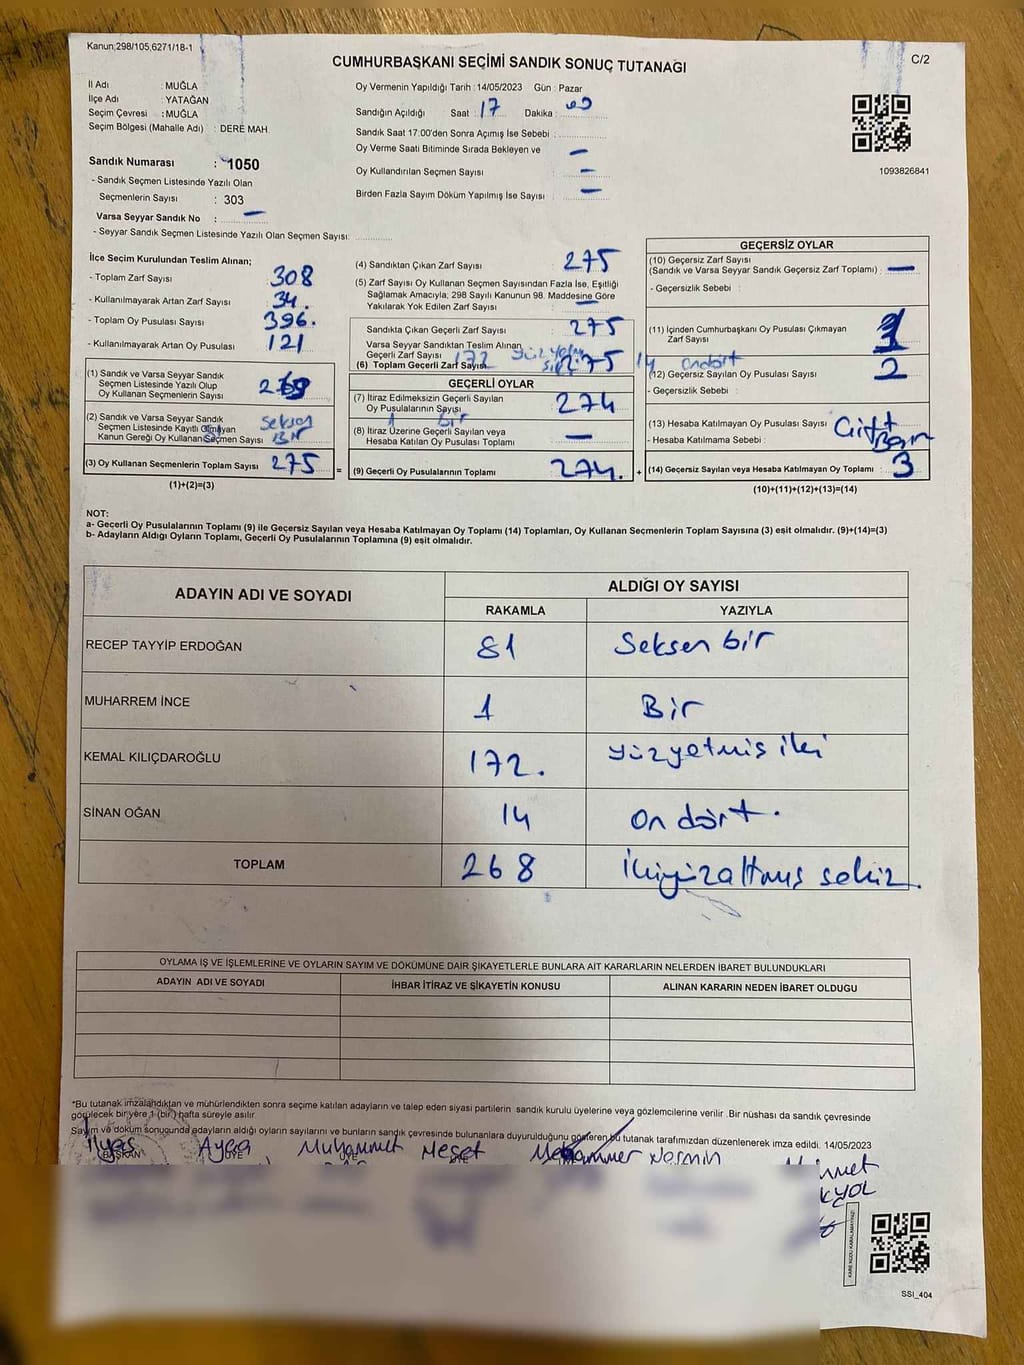 Kanun;298/105,6271/18-1
CUMHURBAŞKANI SEÇİMİ SANDIK SONUÇ TUTANAĞI
C/2
İl Adı : MUĞLA
İlçe Adı : YATAĞAN
Seçim Çevresi : MUĞLA
Seçim Bölgesi (Mahalle Adı) : DERE MAH
Oy Vermenin Yapıldığı Tarih : 14/05/2023 Gün : Pazar
Sandığın Açıldığı Saat : 17 Dakika : 00
Sandık Saat 17:00'den Sonra Açımış İse Sebebi :
Oy Verme Saati Bitiminde Sırada Bekleyen ve
Oy Kullandırılan Seçmen Sayısı : -
Birden Fazla Sayım Döküm Yapılmış İse Sayısı : -
1093826841
Sandık Numarası : 1050
- Sandık Seçmen Listesinde Yazılı Olan
Seçmenlerin Sayısı : 303
Varsa Seyyar Sandık No : -
- Seyyar Sandık Seçmen Listesinde Yazılı Olan Seçmen Sayısı:
İlçe Seçim Kurulundan Teslim Alınan;
- Toplam Zarf Sayısı 308
- Kullanılmayarak Artan Zarf Sayısı 34.
- Toplam Oy Pusulası Sayısı 396.
- Kullanılmayarak Artan Oy Pusulası 121
(1) Sandık ve Varsa Seyyar Sandık
Seçmen Listesinde Yazılı Olup
Oy Kullanan Seçmenlerin Sayısı
(2) Sandık ve Varsa Seyyar Sandık
Seçmen Listesinde Kayıtlı Olmayan
Kanun Gereği Oy Kullanan Seçmen Sayısı
seksen
Bir
(3) Oy Kullanan Seçmenlerin Toplam Sayısı 275
(1)+(2)=(3)
(4) Sandıktan Çıkan Zarf Sayısı 275
(5) Zarf Sayısı Oy Kullanan Seçmen Sayısından Fazla İse, Eşitliği
Sağlamak Amacıyla, 298 Sayılı Kanunun 98. Maddesine Göre
Yakılarak Yok Edilen Zarf Sayısı -
Sandıkta Çıkan Geçerli Zarf Sayısı 275
Varsa Seyyar Sandıktan Teslim Alınan
Geçerli Zarf Sayısı 172
(6) Toplam Geçerli Zarf Sayısı 275
=
GEÇERLİ OYLAR
(7) İtiraz Edilmeksizin Geçerli Sayılan
Oy Pusulalarının Sayısı 274
1 bir
(8) İtiraz Üzerine Geçerli Sayılan veya
Hesaba Katılan Oy Pusulası Toplamı -
(9) Geçerli Oy Pusulalarının Toplamı 274.
+
GEÇERSİZ OYLAR
(10) Geçersiz Zarf Sayısı
(Sandık ve Varsa Seyyar Sandık Geçersiz Zarf Toplamı) : -
- Geçersizlik Sebebi :
(11) İçinden Cumhurbaşkanı Oy Pusulası Çıkmayan
Zarf Sayısı 1
14 ondört
(12) Geçersiz Sayılan Oy Pusulası Sayısı 2
- Geçersizlik Sebebi :
(13) Hesaba Katılmayan Oy Pusulası Sayısı :
- Hesaba Katılmama Sebebi :
(14) Geçersiz Sayılan veya Hesaba Katılmayan Oy Toplamı : 3
(10)+(11)+(12)+(13)=(14)
NOT:
a- Geçerli Oy Pusulalarının Toplamı (9) ile Geçersiz Sayılan veya Hesaba Katılmayan Oy Toplamı (14) Toplamları, Oy Kullanan Seçmenlerin Toplam Sayısına (3) eşit olmalıdır. (9)+(14)=(3)
b- Adayların Aldığı Oyların Toplamı, Geçerli Oy Pusulalarının Toplamına (9) eşit olmalıdır.
ADAYIN ADI VE SOYADI
ALDIĞI OY SAYISI
RAKAMLA YAZIYLA
RECEP TAYYİP ERDOĞAN 81 Seksen bir
MUHARREM İNCE 1 Bir
KEMAL KILIÇDAROĞLU 172. yüzyetmiş iki
SİNAN OĞAN 14 on dört.
TOPLAM 268 ikiyüzaltmış sekiz.
OYLAMA İŞ VE İŞLEMLERİNE VE OYLARIN SAYIM VE DÖKÜMÜNE DAİR ŞİKAYETLERLE BUNLARA AİT KARARLARIN NELERDEN İBARET BULUNDUKLARI
ADAYIN ADI VE SOYADI İHBAR İTİRAZ VE ŞİKAYETİN KONUSU ALINAN KARARIN NEDEN İBARET OLDUGU
*Bu tutanak imzalandıktan ve mühürlendikten sonra seçime katılan adayların ve talep eden siyasi partilerin sandık kurulu üyelerine veya gözlemcilerine verilir .Bir nüshası da sandık çevresinde
görülecek bir yere 1 (bir) hafta süreyle asılır.
Sayım ve döküm sonugunda adayların aldığı oyların sayılarını ve bunların sandık çevresinde bulunanlara duyurulduğunu gösteren bu tutanak tarafımızdan düzenlenerek imza edildi. 14/05/2023
İlyas Muhammet
BAŞKAN ÜYE
KARE KODU KARALAMAYINIZ!
SSI_404